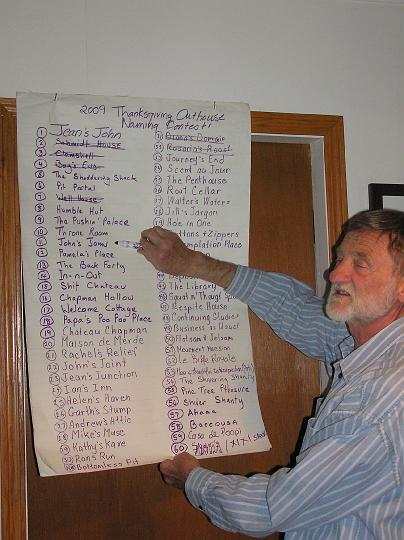 2009 Thanksgiving Outhouse
Naming Contest!
1 Jean's John
2 Schmidt House
3 Clamshell
4 Bog's End
5 The Shuddering Shack
6 Pit Portal
7 Well House
8 Humble Hut
9 The Pushin' Palace
10 Throne Room
11 John's Jones
12 Pamela's Place
13 The Back Forty
14 In-n-Out
15 Shit Chateau
16 Chapman Hollow
17 Welcome Cottage
18 Papa's Poo Poo Place
19 Chateau Chapman
20 Maison de Merde
21 Rachel's Relief
22 John's Joint
23 Jean's Junction
24 Ian's Inn
25 Helen's Haven
26 Garth's Stump
27 Andrew's Attic
28 Mike's Muse
29 Kathy's Kave
30 Ron's Run
Bottomless Pit
Domain
Rosario's Roost
33 Journey's End
34 Scent du Jour
35 The Penthouse
36 Root Cellar
37 Walter's Waters
38 Jill's Jargon
39 Hole in One
ttons & Zippers
mplation Place
The Library
Squat n' Thought
Respite House
48 Continuing Studies
49 Business as Usual
50 Flotsam & Jetsam
51 Movement Mansion
52 Le Biffe Royale
53
54 The Shivering Shanty
55 Pine Tree Pleasure
56 Shiver Shanty
57 Ahhhh
58
59 Casa de Poopi
60